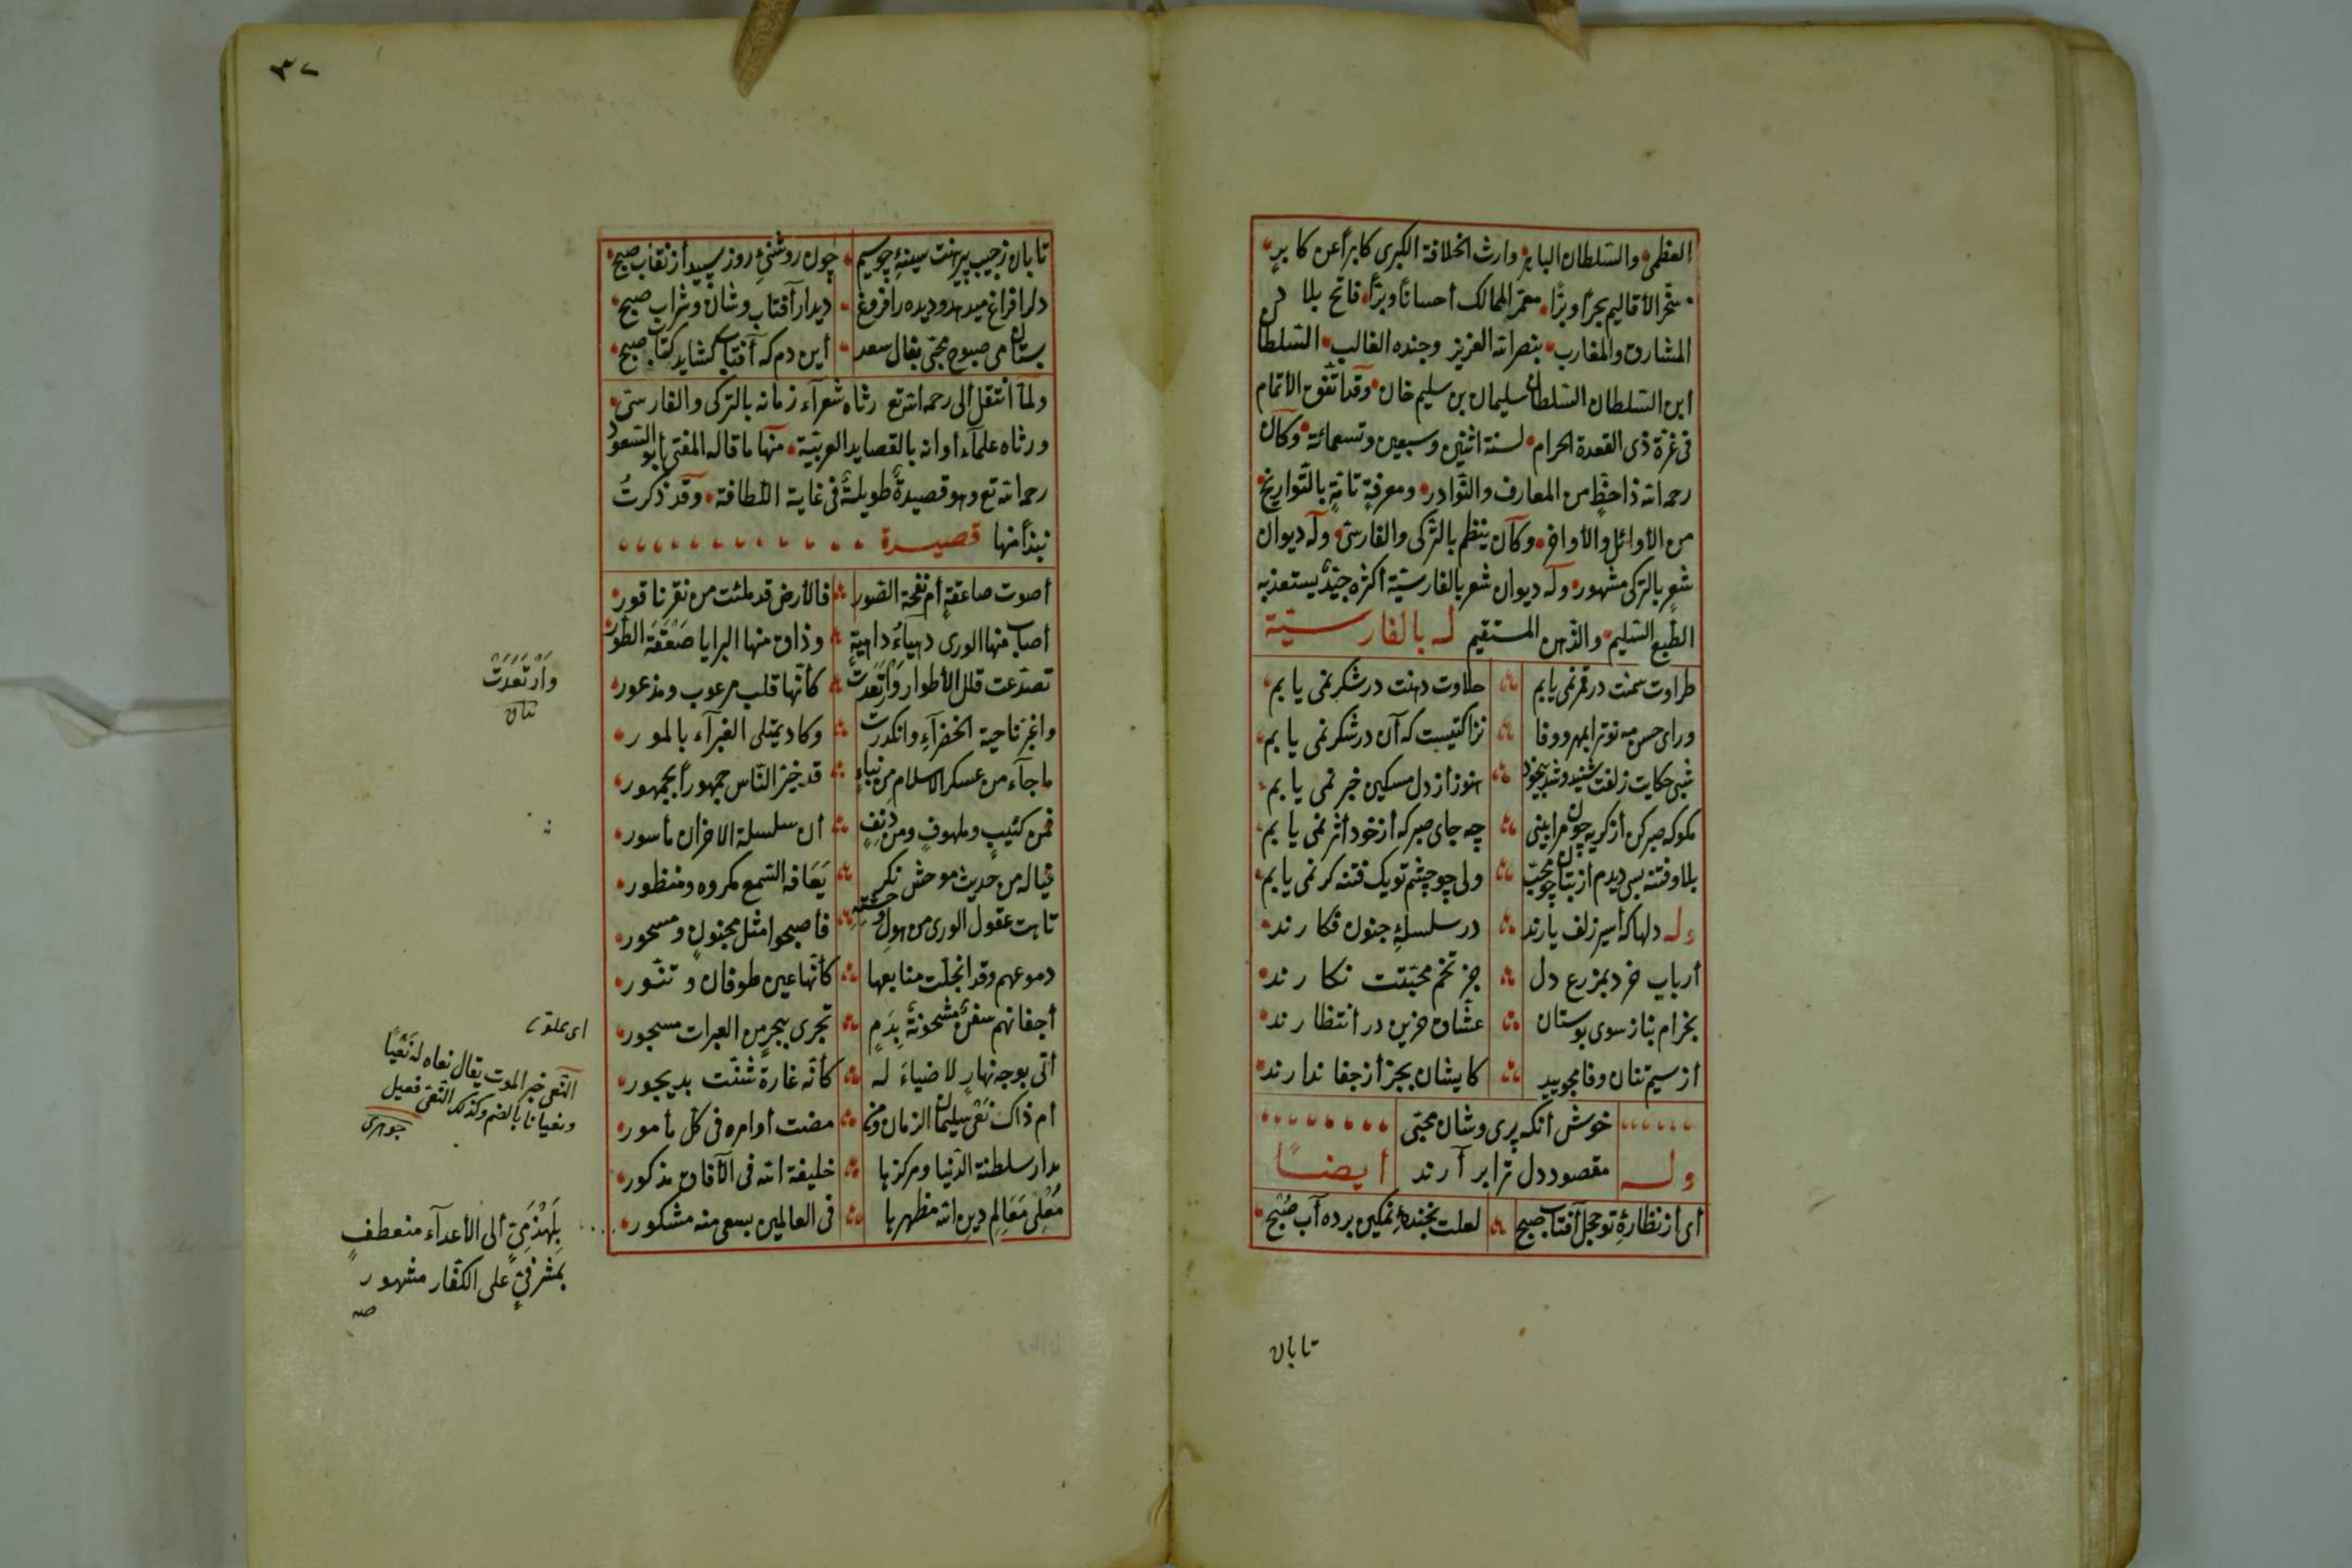 العظمى والسلطان الباهر وارث الخلافة الكبرى كابرًا عن كابرٍ
مسخّر الأقاليم بحرًا وبرًّا معمّر الممالك أحسانًا وبرًّا فاتح بلاد
المشارق والمغارب بنصر الله العزيز وجنده الغالب السلطان
ابن السلطان السلطان سليمان بن سليم خان وقد اتّفق الأتمام
فى غرّة ذى القعدة الحرام لسنة اثنين وسبعين وتسعمائة وكان
رحمه الله ذا حظٍّ من المعارف والنّوادر ومعرفةٍ تامّةٍ بالتّواريخ
من الأوائل والأواخر وكان ينظم بالتّركى والفارسىّ وله ديوان
شعرٍ بالتركى مشهور وله ديوان شعر بالفارسيّة أكثره جيّدٌ يستعذبه
الطّبع السّليم والذّهن المستقيم له بالفارسيّة
طراوت سمنت در قمر نمى يابم حلاوت دهنت در شكر نمى يابم
وراى حسن مه نو ترا بمهر ووفا نزاكتيست كه آن در شكر نمى يابم
شبى حكايت زلفت شنيد وشد بيخود هنوز از دل مسكين خبر نمى يابم
مكو كه صبر كن از كريه چون مرا بينى چه جاى صبر كه از خود أثر نمى يابم
بلا وفتنه بسى ديدم از بتان چو محبّ ولى چو چشم تو يك فتنه كر نمى يابم
وله دلها كه أسير زلف يارند در سلسلهٔ جنون فكارند
أرباب خرد بمزرع دل جز تخم محبّتت نكارند
بخرام بناز سوى بوستان عشّاق حزين در انتظارند
از سيم تنان وفا مجوييد كايشان بجز از جفا ندارند
خوش آنكه پرى وشان محبّى
وله مقصود دل ترا بر آرند أيضًا
أى از نظارهٔ تو خجل آفتاب صبح لعلت بخندهٔ نمكين برده آب صبح
تابان
٣٧
تابان ز جيب پيرهنت سينهٔ چو سيم چون روشنئ روز سپيد از نقاب صبح
دلرا فراغ ميدهد وديده را فروغ ديدار آفتاب وشان وشراب صبح
بستان مى صبوح محبّى بفال سعد أين دم كه آفتاب كشايد كتاب صبح
ولمّا أنتقل ألى رحمة الله تع رثاه شعرآء زمانه بالتركى والفارسىّ
ورثاه علمآء أوانه بالقصايد العربيّة منها ما قاله المفتى أبو السّعود
رحمه الله تع وهو قصيدةٌ طويلةٌ فى غاية اللّطافة وقد ذكرتُ
نبذًا منها قصيدة
أصوت صاعقةٍ أم نفخة الصّور فالأرض قد ملئت من نقر ناقور
أصاب منها الورى دهياءُ داهيةٍ وذاق منها البرايا صَعْقَةَ الطّور
تصدّعت قلل الأطوار وَارْتَعَدَتْ كأنّها قلب مرعوب ومذعور
واغبرّ ناحية الخضرآءِ وانكدرت وكاد يمتلى الغبرآء بالمور
ما جآء من عسكر الاسلام من نباءٍ قد خيّر النّاس جمهورًا بجمهور
فمن كئيبٍ وملهوفٍ ومن دنفٍ أن سلسلة الاحزان مأسور
فياله من حديث موحش نكر يَعَافه السّمع مكروه ومنظور
تاهت عقول الورى من هول وحشته فأصبحوا مثل مجنونٍ ومسحور
دموعهم وقد انجلت منابعها كأنّها عين طوفان وتنّور
أجفانهم سفنٌ مشحونةٌ بِدَمٍ تجرى ببحرٍ من العبرات مسجور
أتى بوجه نهارٍ لا ضياءَ له كأنّه غارة شنّت بديجور
أم ذاك نَعْىُ سليمان الزمان ومن مضت أوامره فى كل مأمور
مدار سلطنة الدّنيا ومركزها خليفة الله فى الآفاق مذكور
مُعْلى مَعَالِمِ دينِ الله مظهرها فى العالمين بسعى منه مشكور
وَارْتَعَدَتْ
النّعى خبر الموت يقال نعاه له نَعْيًا
ونعيانا بالضم وكذلك النّعىّ فعيل
جوهرى
بِلَهْذَمِىٍّ ألى الأعدآء منعطفٍ
بمشرفىٍّ على الكفّار مشهور
صه